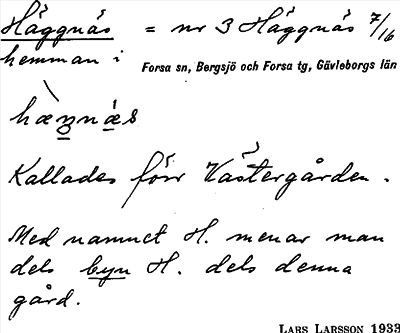 Häggnäs = nr 3 Häggnäs 7/16
hemman i
Forsa sn, Bergsjö och Forsa tg, Gävleborgs län
hæŋnæs
Kallades förr Västergården.
Med namnet H. menar man
dels byn H. dels denna
gård.
LARS LARSSON 1933